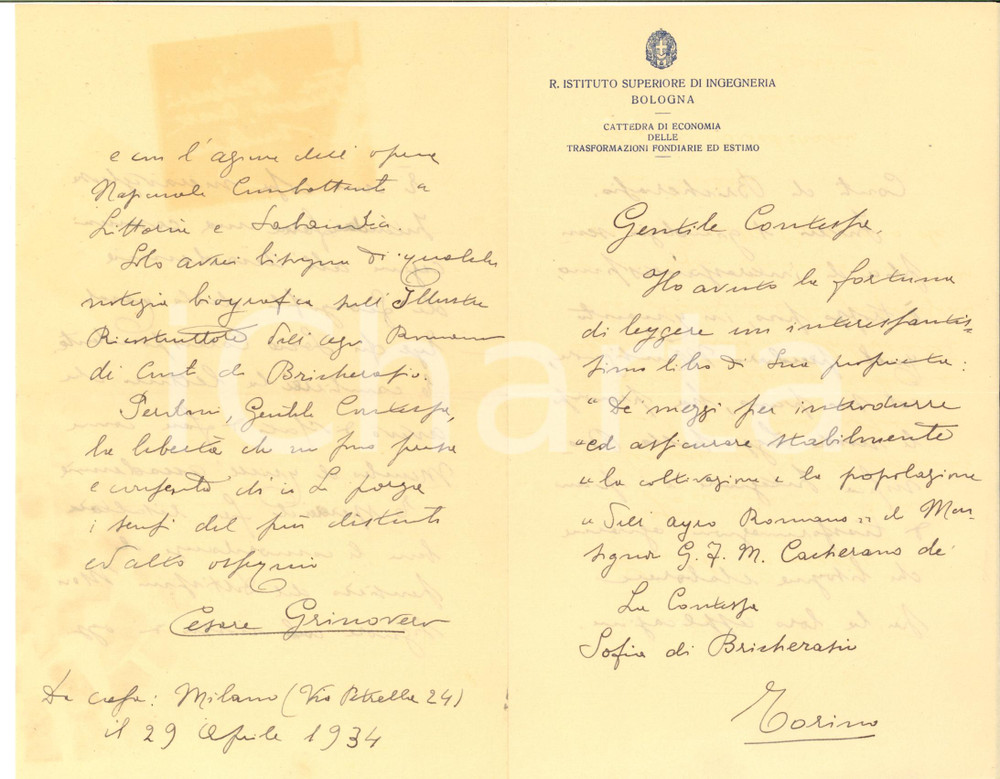 R. ISTITUTO SUPERIORE DI INGEGNERIA
BOLOGNA
CATTEDRA DI ECONOMIA
DELLE
TRASFORMAZIONI FONDIARIE ED ESTIMO
Gentile Contessa,
Ho avuto la fortuna
di leggere un interessantis-
simo libro di Sua proprietà:
"De mezzi per introdurre
"ed assicurare stabilmente
"la coltivazione e la popolazione
"dell'agro Romano" di Mon-
signor G. F. M. Cacherano de'
La Contessa
Sofia di Bricherasio
Torino
e con l'azione dell'opera
Nazionale Combattenti a
Littoria e Sabaudia.
Solo avrei bisogno di qualche
notizia biografica sull'Illustre
Ricostruttore dell'agro Romano
di Conti di Bricherasio.
Perdoni, Gentile Contessa,
la libertà che mi sono presa
e consenta di a Le porga
i sensi del più distinto
ed alto ossequio
Cesare Grinovero
Da casa: Milano (Via Petrella 24)
il 29 Aprile 1934
iCharta